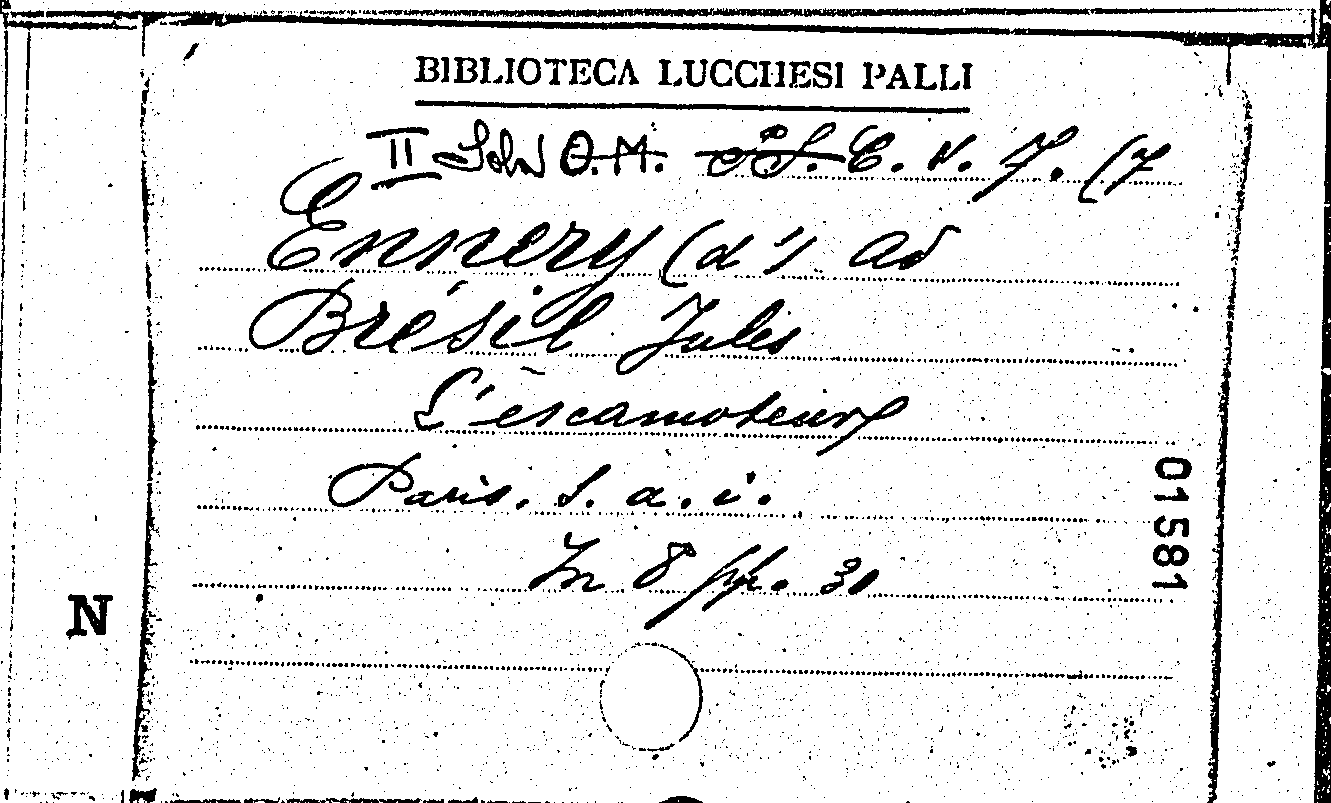 BIBLIOTECA LUCCHESI PALLI
II Sala O.M. C. V. 7. (7
Ennery (d') Ad
Brésil Jules
L'escamoteur
Paris. s. a. i.
In 8 pp. 30
01581
N